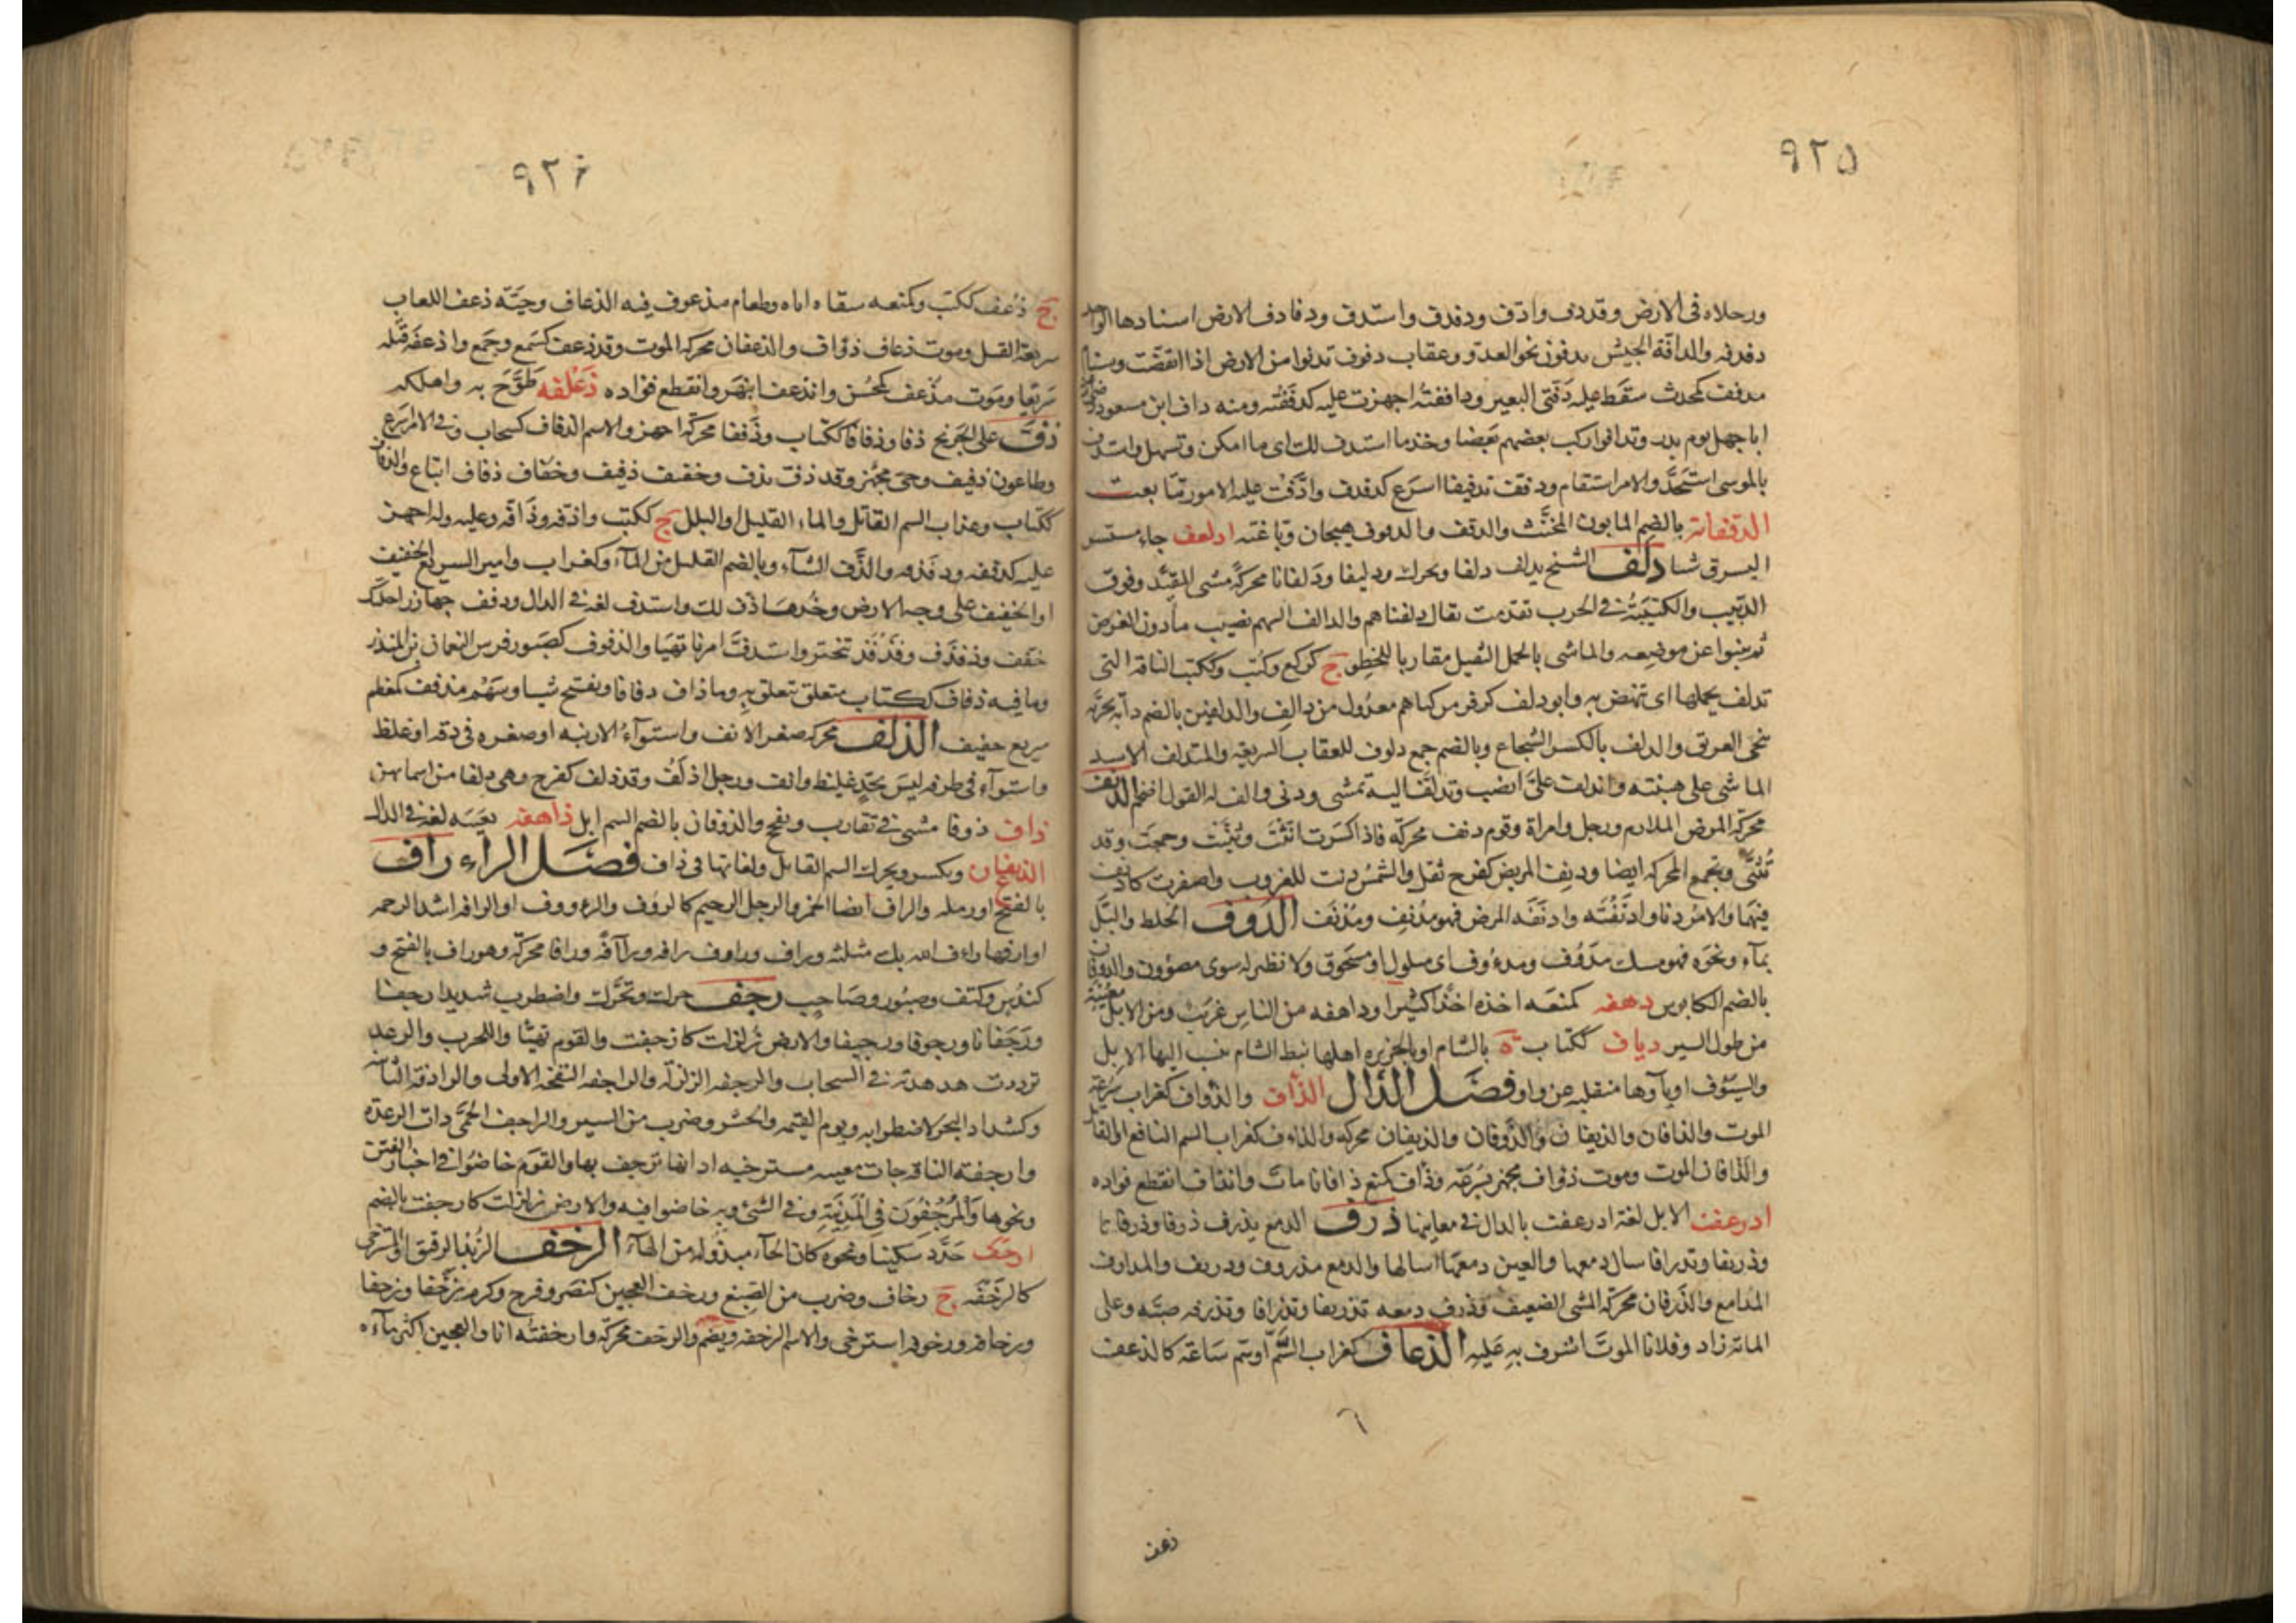 ٩٢٥
ورجلاه فى الارض وقد دف وادف ودفدف واستدف ودفادف الارض اسنادها الواحد
دفدفه والدافة الجيش يدفون نحو العدو وعقاب دفوف تدنوا من الارض اذا انقضت وسنام
مدفف كمحدث سقط على دفتى البعير ودافقته اجهزت عليه كدففته ومنه داف ابن مسعود
ابا جهل يوم بدر وتدافوا ركب بعضهم بعضا وخذ ما استدف لك اى ما امكن وتسهل واستدف
بالموسى استحد والامر استقام ودفف تدفيفا اسرع كدفدف وادفت عليه الامور تتابعت
الدقفانة بالضم المابون المخنث والدقف والدقوف هيجان وباغته ادلعف جاء مستسر
اليسرق شيا دلف الشيخ يدلف دلفا ويحرك ودليفا ودلفانا محركة مشى المقيد وفوق
الدبيب والكتيبة فى الحرب تقدمت يقال دلفناهم والدالف السهم نصيب مادون الغرض
ثم ينبوا عن موضعه والماشى بالحمل الثقيل مقاربا للخطو ج كركع وكتب وككتب الناقة التى
تدلف بحملها اى تنهض به وابو دلف كزفر من كناهم معدول من دالف والدلفين بالضم دابة بحرية
تنجى الغرق والدلف بالكسر الشجاع وبالضم جمع دلوف للعقاب السريعة والمتدلف الاسد
الماشى على هينته واندلف على انصب وتدلف اليه تمشى ودنى وادلف له القول اضخم الدنف
محركة المرض الملازم ورجل وامراة وقوم دنف محركة فاذا كسرت انثت وثنيت وجمعت وقد
تثنى وتجمع المحركة ايضا ودنف المريض كفرح ثقل والشمس دنت للغروب واصفرت كادنفت
فيهما والامر دنا وادنفته وادنفه المرض فهو مدنف ومدنف الدوف الخلط والبل
بماء ونحوه فهو مسك مدوف ومدووف اى مبلول او مسحوق ولا نظير له سوى مصوون والدوفان
بالضم الكابوس دهفه كمنعه اخذه اخذا كثيرا وداهفة من الناس غريب ومن الابل معيية
من طول السير دياف ككتاب ة بالشام او بالجزيرة اهلها نبط الشام ينسب اليها الابل
والسيوف او ياؤها منقلبة عن واو فصل الذال الذاف والذواف كغراب سرعة
الموت والذافان والذيفان والذوفان والذيفان محركة والذءاف كغراب السم الناقع او القاتل
والذافان الموت وموت ذواف مجهز بسرعة وذاف كمنع ذافانا مات وانذاف انقطع فواده
اذرعفت الابل لغة ادرعفت بالدال فى معانيها ذرف الدمع يذرف ذرفا وذرفانا
وذريفا وتذرافا سال دمعها والعين دمعها اسالها والدمع مذروف وذريف والمذارف
المدامع والذرفان محركة المشى الضعيف وذرف دمعه تذريفا وتذرافا وتذرفه صبه وعلى
المائة زاد وفلانا الموت اشرف به عليه الذعاف كغراب السم او سم ساعة كالذعف
ذعف
٩٢٦
ج ذعف ككتب وكمنعه سقاه اياه وطعام مذعوف فيه الذعاف وحية ذعف اللعاب
سريعة القتل وموت ذعاف ذؤاف والذعفان محركة الموت وقد ذعف كسمع وجمع واذعفه قتله
سريعا وموت مذعف كمحسن وانذعف انبهر وانقطع فواده ذعلفه طوح به واهلكه
ذف على الجريح ذفا وذفافا ككتاب وذففا محركة اجهز والاسم الذفاف كسحاب وفى الامر اسرع
وطاعون ذفيف وحى مجهز وقد ذف يذف وخفيف ذفيف وخفاف ذفاف اتباع والذفاف
ككتاب وغراب السم القاتل والماء القليل او البلل ج ككتب واذفه وذافه وعليه وله اجهز
عليه كذففه وذفذفه والذف الشاء وبالضم القليل من الماء وكغراب وامير السريع الخفيف
او الخفيف على وجه الارض وخذ ما ذف لك واستذف لغة فى الدال وذفف جهاز راحلتك
خفف وذفذف وفذفذ تبختر واستذف امرنا تهيا والذفوف كصبور فرس النعمان بن المنذر
وما فيه ذفاف ككتاب متعلق يتعلق به وما ذاف ذفافا ويفتح شيا وسهم مذفف كمعظم
سريع خفيف الذلف محركة صغر الانف واستواء الارنبة او صغره فى دقة او غلظ
واستواء فى طرفه ليس بحد غليظ وانف ورجل اذلف وقد ذلف كفرح وهى ذلفا من اسمائهن
ذاف ذوفا مشى فى تقارب وتفحج والذوفان بالضم السم ابل ذاهفة معييه لغة فى الدال
الذيفان ويكسر ويحرك السم القاتل ولغاتها فى ذاف فصل الراء راف
بالفتح او رملة والراف ايضا الخمر والرجل الرحيم كالرؤف والرءووف او الرافة اشد الرحمة
او ارقها راءف الله بك مثلثة وراف وراوف رافة وراآفة ورافا محركة وهو راف بالفتح و
كندس وكتف وصبور وصاحب رجف حرك وتحرك واضطرب شديدا رجفا
ورجفانا ورجوفا ورجيفا والارض زلزلت كارجفت والقوم تهيئا واللحرب والرعد
ترددت هدهدته فى السحاب والرجفة الزلزلة والراجفة النفخة الاولى والرادفة الثانية
وكشداد البحر لاضطرابه ويوم القيمة والحشر وضرب من السير والراجف الحمى ذات الرعدة
وارجفت الناقة جات معيية مسترخية اذانها ترجف بها والقوم خاضوا فى اخبار الفتن
ونحوها والمرجفون فى المدينة وفى الشئ وبه خاضوا فيه والارض زلزلت كارجفت بالضم
ارحف حدد سكينا ونحوه كان الحاء مبدولة من الهاء الرخف الزبد الرقيق او المسترخى
كالرخفة ج رخاف وضرب من الصبغ ورخف العجين كنصر وفرح وكرم رخفا ورخفا
ورخافة ورخوفة استرخى والاسم الرخفة ويضم والرخف محركة وارخفته انا والعجين اكثر ماءه